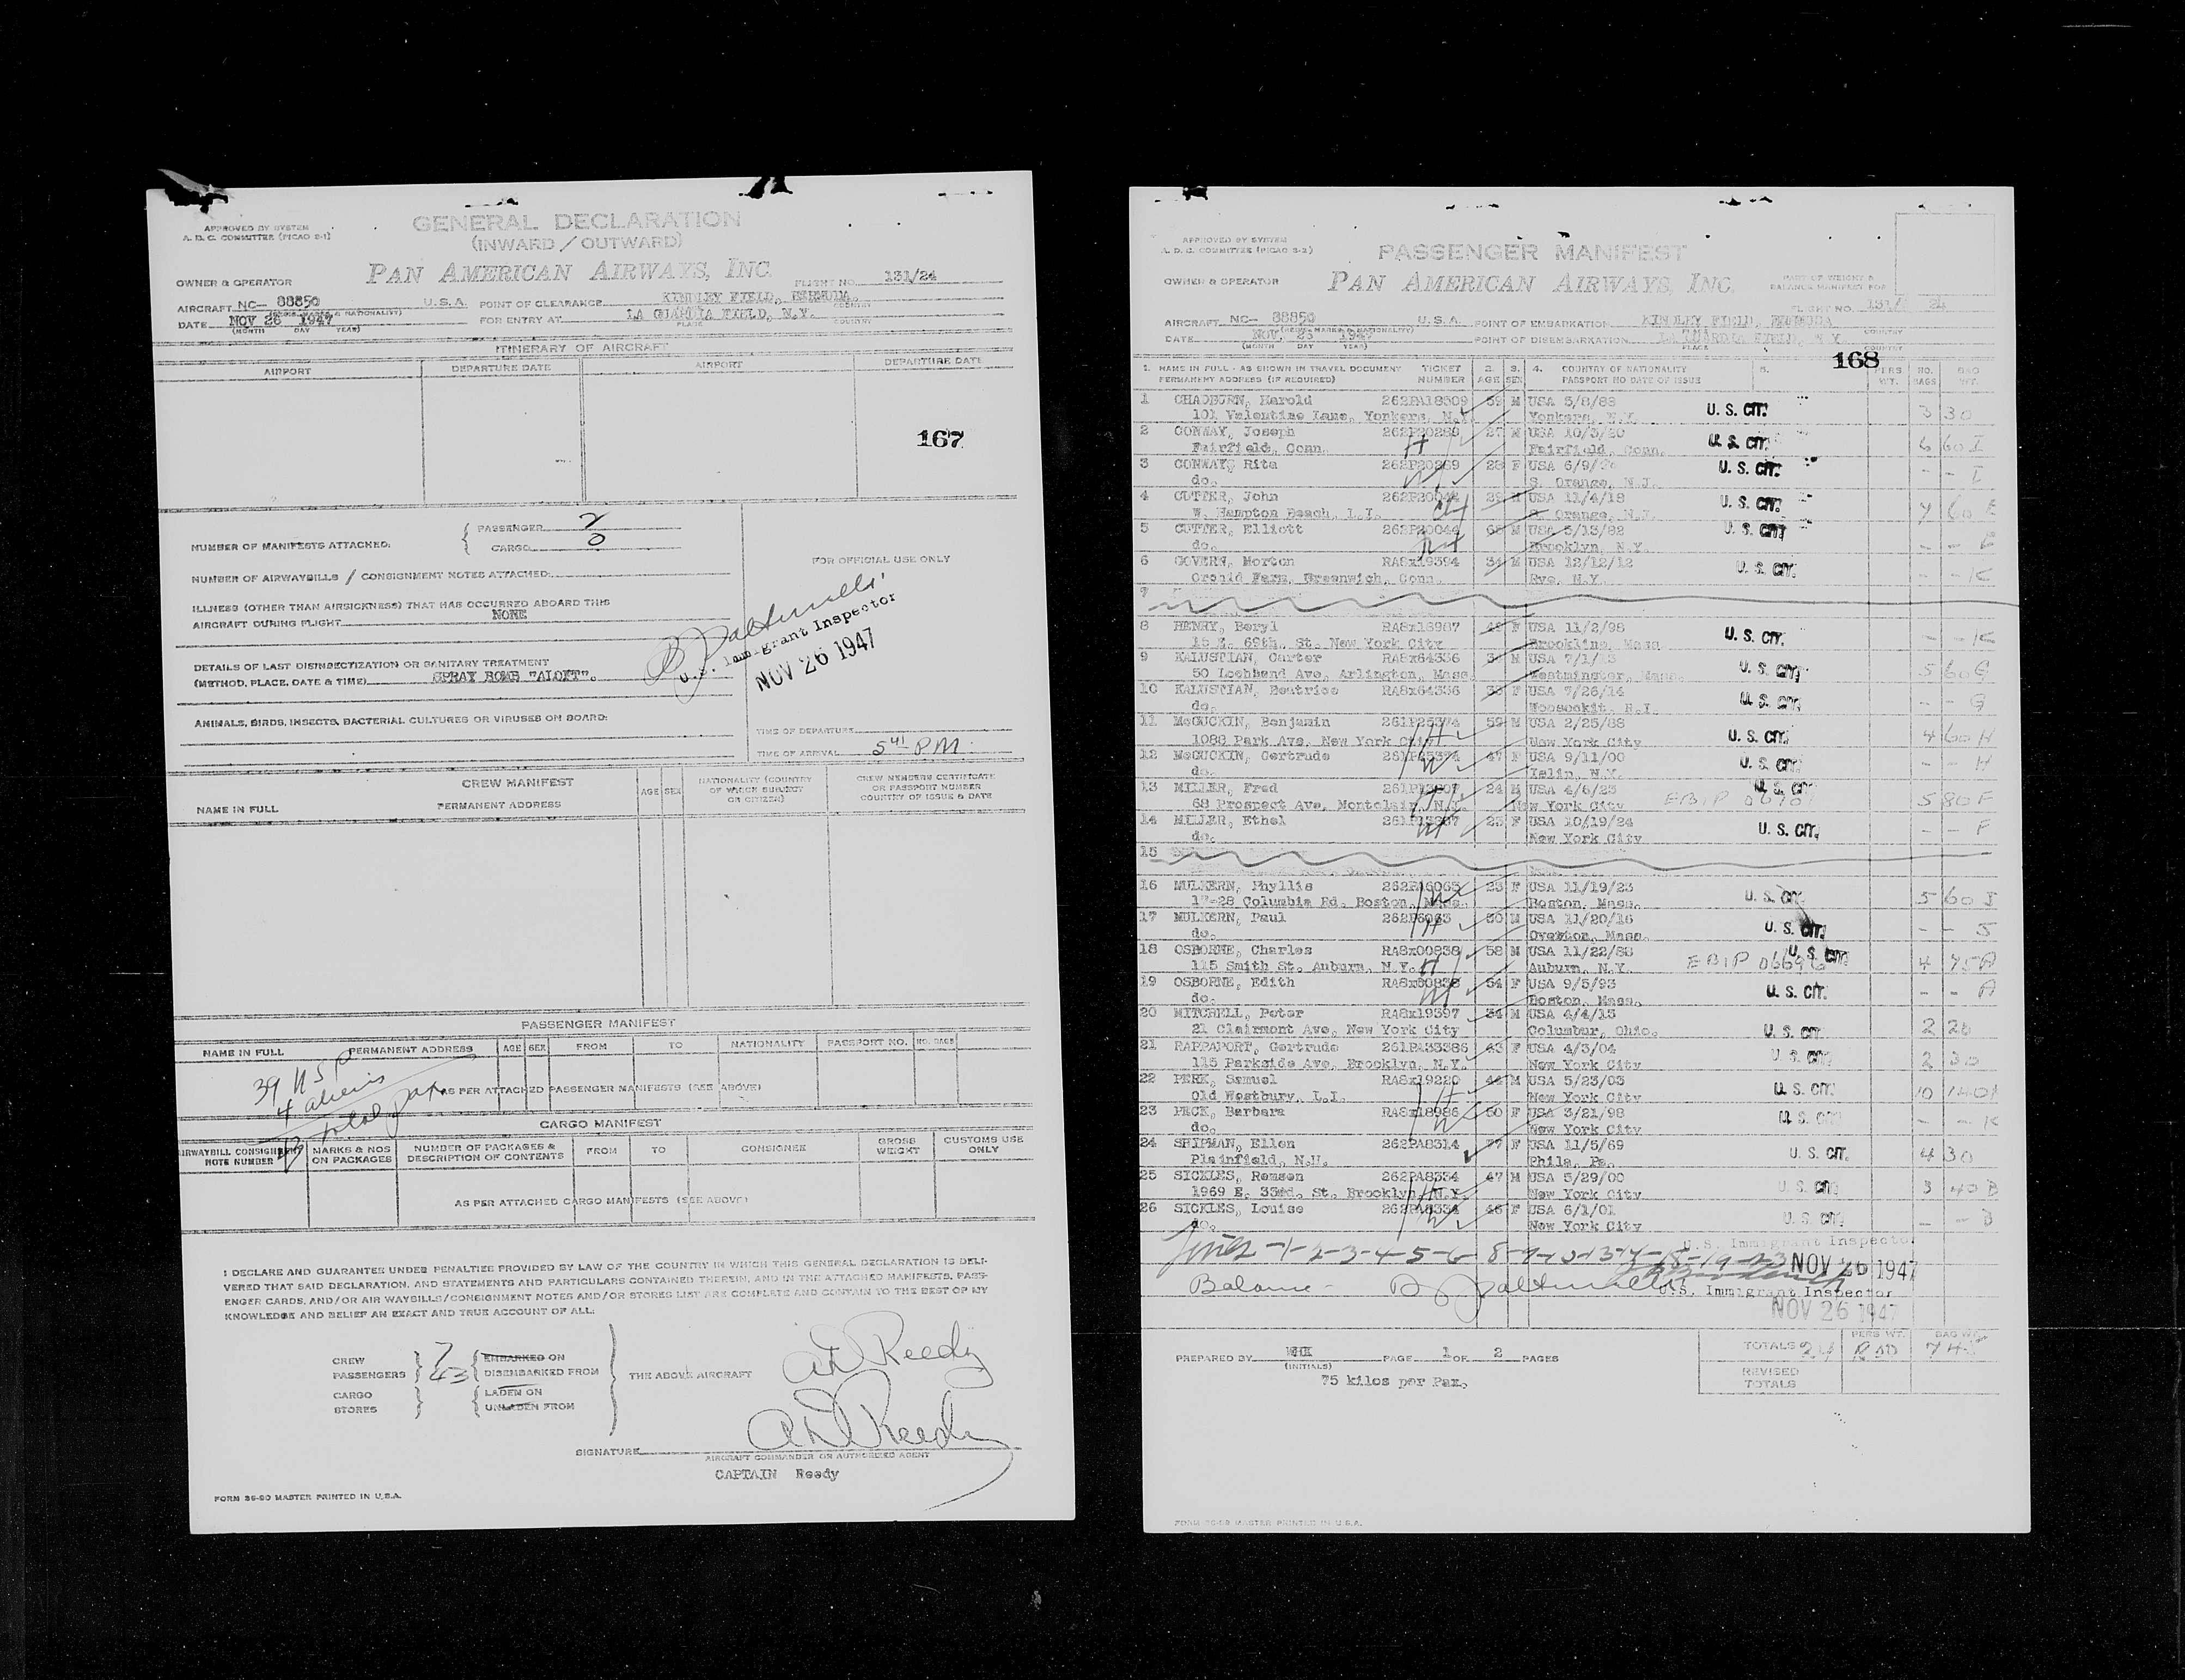 APPROVED BY SYSTEM
A. D. C. COMMITTEE (PICAO 2-1)
GENERAL DECLARATION
(INWARD / OUTWARD)
OWNER & OPERATOR
PAN AMERICAN AIRWAYS, INC.
FLIGHT NO. 131/24
AIRCRAFT NC- 88850 U. S. A. POINT OF CLEARANCE KINDLEY FIELD, BERMUDA.
(MARKS & NATIONALITY) COUNTRY
DATE NOV 26 1947 FOR ENTRY AT LA GUARDIA FIELD, N.Y.
(MONTH DAY YEAR) PLACE COUNTRY
ITINERARY OF AIRCRAFT
AIRPORT DEPARTURE DATE AIRPORT DEPARTURE DATE
167
NUMBER OF MANIFESTS ATTACHED: PASSENGER 2
CARGO 0
NUMBER OF AIRWAYBILLS / CONSIGNMENT NOTES ATTACHED:
ILLNESS (OTHER THAN AIRSICKNESS) THAT HAS OCCURRED ABOARD THIS
AIRCRAFT DURING FLIGHT NONE
DETAILS OF LAST DISINSECTIZATION OR SANITARY TREATMENT
(METHOD, PLACE, DATE & TIME) SPRAY BOMB "ALOFT".
ANIMALS, BIRDS, INSECTS, BACTERIAL CULTURES OR VIRUSES ON BOARD:
FOR OFFICIAL USE ONLY
U.S. Immigrant Inspector
NOV 26 1947
TIME OF DEPARTURE
TIME OF ARRIVAL 5 41 PM
CREW MANIFEST
NAME IN FULL PERMANENT ADDRESS AGE SEX NATIONALITY (COUNTRY OF WHICH SUBJECT OR CITIZEN) CREW MEMBERS CERTIFICATE OR PASSPORT NUMBER COUNTRY OF ISSUE & DATE
PASSENGER MANIFEST
NAME IN FULL PERMANENT ADDRESS AGE SEX FROM TO NATIONALITY PASSPORT NO. NO. BAGS
39 USA
4 aliens
43 total pax
AS PER ATTACHED PASSENGER MANIFESTS (SEE ABOVE)
CARGO MANIFEST
AIRWAYBILL CONSIGNMENT NOTE NUMBER MARKS & NOS ON PACKAGES NUMBER OF PACKAGES & DESCRIPTION OF CONTENTS FROM TO CONSIGNEE GROSS WEIGHT CUSTOMS USE ONLY
AS PER ATTACHED CARGO MANIFESTS (SEE ABOVE)
I DECLARE AND GUARANTEE UNDER PENALTIES PROVIDED BY LAW OF THE COUNTRY IN WHICH THIS GENERAL DECLARATION IS DELI-
VERED THAT SAID DECLARATION, AND STATEMENTS AND PARTICULARS CONTAINED THEREIN, AND IN THE ATTACHED MANIFESTS, PASS-
ENGER CARDS, AND/OR AIR WAYBILLS/CONSIGNMENT NOTES AND/OR STORES LIST ARE COMPLETE AND CONTAIN TO THE BEST OF MY
KNOWLEDGE AND BELIEF AN EXACT AND TRUE ACCOUNT OF ALL:
CREW 7 EMBARKED ON
PASSENGERS 43 DISEMBARKED FROM THE ABOVE AIRCRAFT
CARGO LADEN ON
STORES UNLADEN FROM
A D Reedy
SIGNATURE A D Reedy
AIRCRAFT COMMANDER OR AUTHORIZED AGENT
CAPTAIN Reedy
FORM 36-90 MASTER PRINTED IN U.S.A.
APPROVED BY SYSTEM
A. D. C. COMMITTEE (PICAO 2-2)
PASSENGER MANIFEST
OWNER & OPERATOR
PAN AMERICAN AIRWAYS, INC.
PART OF WEIGHT & BALANCE MANIFEST FOR
FLIGHT NO. 131/ 24
AIRCRAFT NC- 88850 U. S. A. POINT OF EMBARKATION KINDLEY FIELD, BERMUDA
(MARKS & NATIONALITY) PLACE COUNTRY
DATE NOV. 1947 POINT OF DISEMBARKATION LA GUARDIA FIELD, N Y
(MONTH DAY YEAR) PLACE COUNTRY
168
1. NAME IN FULL - AS SHOWN IN TRAVEL DOCUMENT TICKET 2. 3. 4. COUNTRY OF NATIONALITY 5. PERS NO. BAG
PERMANENT ADDRESS (IF REQUIRED) NUMBER AGE SEX PASSPORT NO DATE OF ISSUE WT. BAGS WT.
1 CHADBURN, Harold 262PA18509 59 M USA 5/8/88 U. S. CIT.
101 Valentine Lane, Yonkers, N.Y. Yonkers, N.Y. 3 30
2 CONWAY, Joseph 262P20289 27 M USA 10/3/20 U. S. CIT.
Fairfield, Conn. Fairfield, Conn. 6 60 I
3 CONWAY, Rita 262P20289 28 F USA 6/9/ U. S. CIT.
do. S. Orange, N.J. - - I
4 CUTTER, John 262P20044 29 M USA 11/4/18 U. S. CIT.
W. Hampton Beach, L.I. Orange, N.J. 7 60 E
5 CUTTER, Elliott 262P20044 65 M USA 5/13/82 U. S. CIT.
do. Brooklyn, N.Y. - - E
6 GOVERN, Morton RA8x19394 34 M USA 12/12/12 U. S. CIT.
Orchid Farm, Greenwich, Conn. Rye, N.Y. - - K
7
8 HENRY, Beryl RA8x18987 49 F USA 11/2/98 U. S. CIT.
15 E. 69th, St. New York City Brookline, Mass - - K
9 KALUSTIAN, Carter RA8x64336 M USA 7/1/13 U. S. CIT.
50 Lochbend Ave, Arlington, Mass. Westminster, Mass. 5 60 G
10 KALUSTIAN, Beatrice RA8x64336 33 F USA 7/26/14 U. S. CIT.
do. Woosockit, R.I. - - G
11 McGUCKIN, Benjamin 261P25374 59 M USA 2/25/88 U. S. CIT.
1088 Park Ave, New York City New York City 4 60 H
12 McGUCKIN, Gertrude 261P25374 47 F USA 9/11/00 U. S. CIT.
do. Islin, N.Y. - - H
13 MILLER, Fred 24 M USA 4/6/23 U. S. CIT.
68 Prospect Ave, Montclair, N.J. New York City EBIP 5 80 F
14 MILLER, Ethel 23 F USA 10/19/24 U. S. CIT.
do. New York City - - F
15
16 MULKERN, Phyllis 262PA6063 23 F USA 11/19/23 U. S. CIT.
17-28 Columbia Rd, Boston, Mass. Boston, Mass. 5 60 J
17 MULKERN, Paul 262P6063 30 M USA 11/20/16 U. S. CIT.
do. Overton, Mass. - - J
18 OSBORNE, Charles RA8x00838 58 M USA 11/22/88 U. S. CIT.
115 Smith St. Auburn, N.Y. Auburn, N.Y. EBIP 4 75 A
19 OSBORNE, Edith RA8x00838 54 F USA 9/5/93 U. S. CIT.
do. Boston, Mass. - - A
20 MITCHELL, Peter RA8x19397 34 M USA 4/4/13 U. S. CIT.
21 Clairmont Ave, New York City Columbur, Ohio. 2 20
21 RAPPAPORT, Gertrude 261PA33386 43 F USA 4/3/04 U. S. CIT.
115 Parkside Ave, Brooklyn, N.Y. New York City 2 30
22 PERK, Samuel RA8x19220 44 M USA 5/23/03 U. S. CIT.
Old Westbury, L.I. New York City 10 140 K
23 PECK, Barbara RA8x18986 50 F USA 3/21/98 U. S. CIT.
do. New York City - - K
24 SHIPMAN, Ellen 262PA8314 77 F USA 11/5/69 U. S. CIT.
Plainfield, N.H. Phila, Pa. 4 30
25 SICKLES, Remsen 262PA8334 47 M USA 5/29/00 U. S. CIT.
1969 E. 33rd, St. Brooklyn, N.Y. New York City 3 40 B
26 SICKLES, Louise 262PA8334 46 F USA 6/1/01 U. S. CIT.
do. New York City - - B
Lines -1-2-3-4-5-6 8-9-10-13-14-18-19-23 U.S. Immigrant Inspector NOV 26 1947
Balance - U.S. Immigrant Inspector
NOV 26 1947
PREPARED BY WHK PAGE 1 OF 2 PAGES
(INITIALS)
75 kilos per Pax.
PERS WT. BAG WT.
TOTALS 24
REVISED TOTALS
FORM 36-89 MASTER PRINTED IN U.S.A.